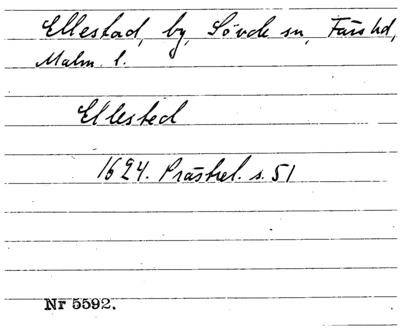 Ellestad, by, Sövde sn, Färs hd,
Malm. l.
Ellested
1624. Prästrel. s. 51
Nr 5592.